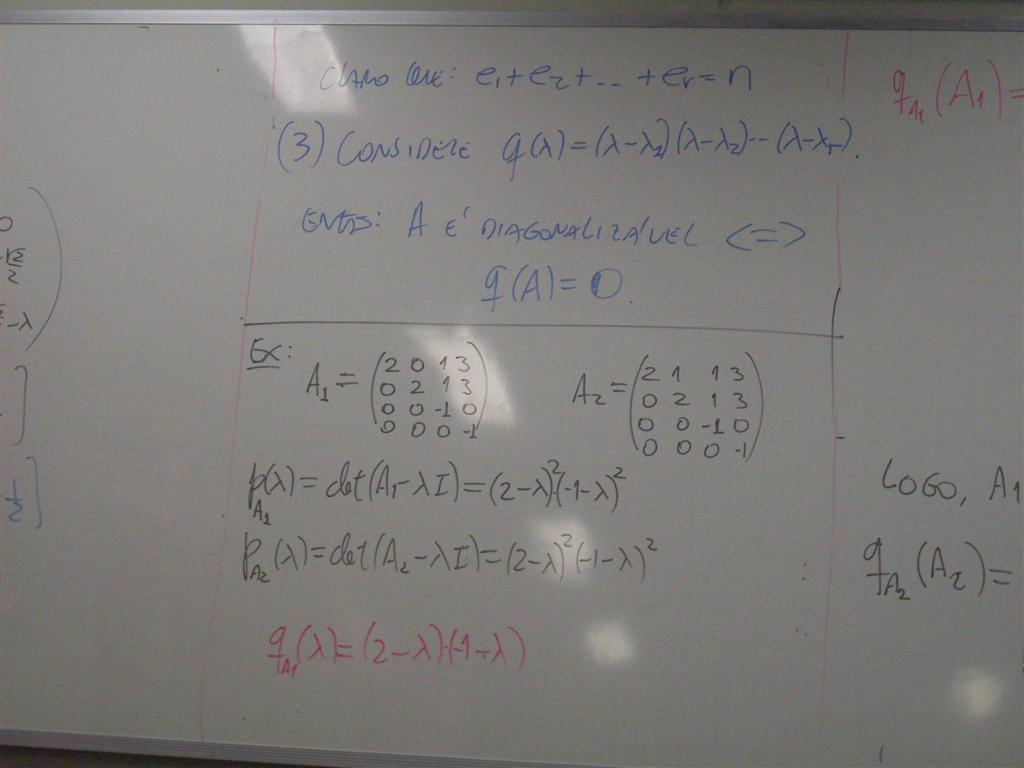 CLARO QUE: e₁+e₂+...+eᵣ=n
(3) CONSIDERE q(λ)=(λ-λ₁)(λ-λ₂)--(λ-λᵣ).
ENTÃO: A É DIAGONALIZÁVEL <=>
q(A)=0.
Ex:
A₁ = (2 0 1 3
0 2 1 3
0 0 -1 0
0 0 0 -1)
A₂ = (2 1 1 3
0 2 1 3
0 0 -1 0
0 0 0 -1)
p_A₁(λ) = det(A₁-λI) = (2-λ)²(-1-λ)²
p_A₂(λ) = det(A₂-λI) = (2-λ)²(-1-λ)²
q_A₁(λ) = (2-λ)·(-1-λ)
q_A₁(A₁) =
LOGO, A₁
q_A₂(A₂) =
0
-λ
1/2